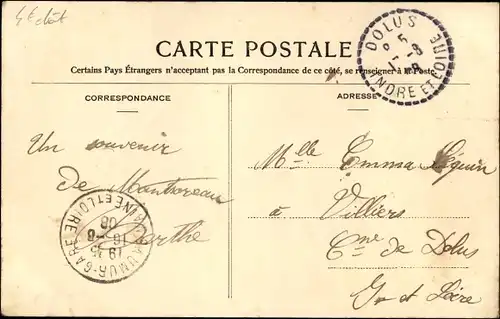 4è dét
CARTE POSTALE
Certains Pays Étrangers n'acceptent pas la Correspondance de ce côté, se renseigner à la Poste
CORRESPONDANCE
ADRESSE
DOLUS
INDRE ET LOIRE
Un souvenir
de Montsoreau
Berthe
SAUMUR-GARE
MAINE ET LOIRE
19 15
16 - 8
08
Mlle Emma
à Villiers
Cne de Dolus
In et Loire